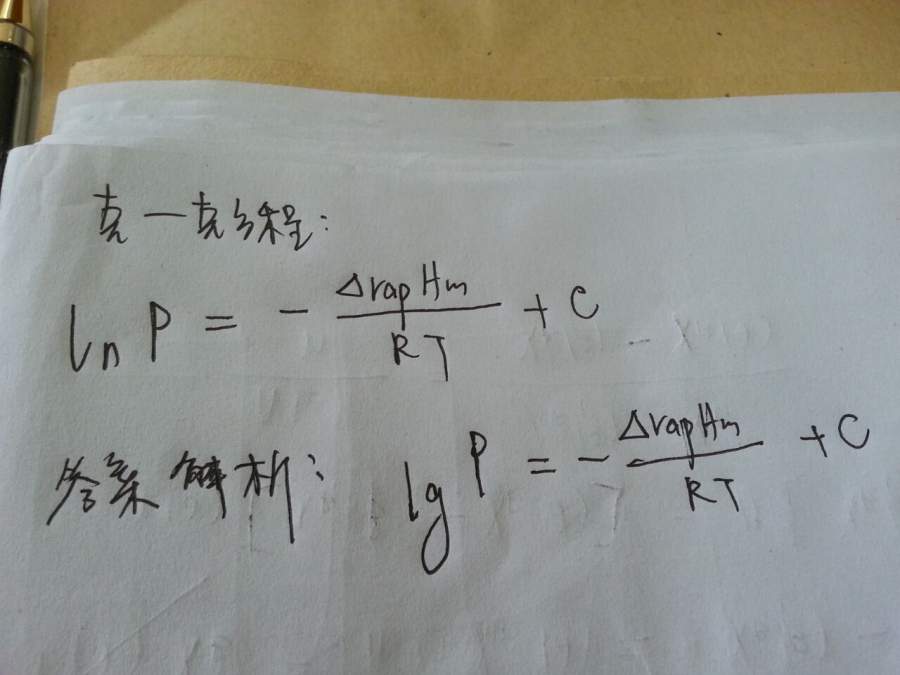 克一克方程:
ln P = - ΔvapHm / RT + C
答案解析: lg P = - ΔvapHm / RT + C